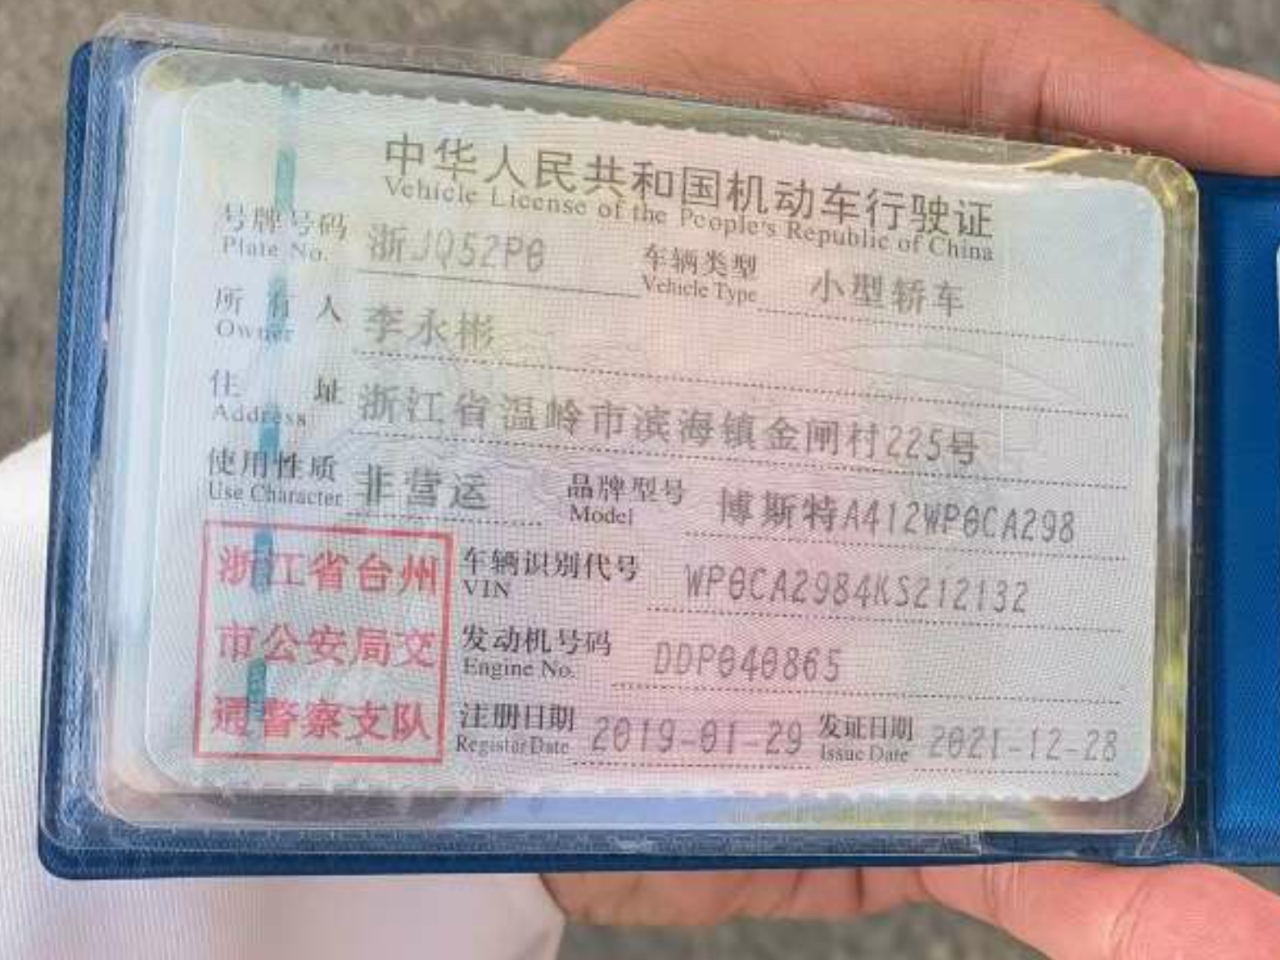 中华人民共和国机动车行驶证
Vehicle License of the People's Republic of China
号牌号码 浙JQ52P0 车辆类型 小型轿车
Plate No. Vehicle Type
所有人 李永彬
Owner
住址 浙江省温岭市滨海镇金闸村225号
Address
使用性质 非营运 品牌型号 博斯特A412WP0CA298
Use Character Model
浙江省台州
市公安局交
通警察支队
车辆识别代号 WP0CA2984KS212132
VIN
发动机号码 DDP040865
Engine No.
注册日期 2019-01-29 发证日期 2021-12-28
Register Date Issue Date